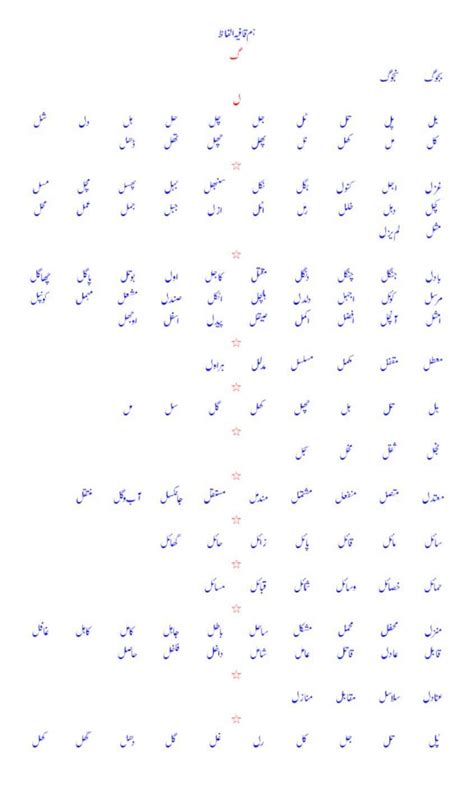 ہم قافیہ الفاظ
گ
بجوگ نجوگ
ل
بل پل تل ٹل جل چل حل ہل دل شل
کل مل کھل نل پھل چھل تھل ڈھل
☆
غزل اجل کنول بگل نگل سنبھل بہل پھسل مچل مسل
کچل دہل خلل رمل اٹل ازل جبل جہل عمل محل
مثل لم یزل
☆
بادل جنگل چنگل دنگل مقتل کاجل اول بوتل پاگل چھاگل
مرسل کونپل اجہل دلدل ہلچل انگل صندل مشعل مہمل کونپل
امثل آنچل افضل اکمل صیقل پیدل اسفل اوجھل
☆
معطل مقفل مکمل مسلسل مدلل ہراول
☆
بل تل ہل چھل کھل گل سل مل
☆
نجل ثقل مخل سجل
☆
معتدل متصل منفعل مشتمل مندمل مستقل جانگسل آب و گل منتقل
☆
سائل مائل قائل پائل زائل حائل گھائل
☆
حمائل خصائل وسائل شمائل قبائل مسائل
☆
منزل محفل محمل مشکل ساحل باطل جاہل کامل کاہل غافل
قابل عادل قاتل عامل شامل داخل فلفل حاصل
☆
عنادل سلاسل مقابل منازل
☆
پل تل جل کل رل غل گل دھل گھل کھل